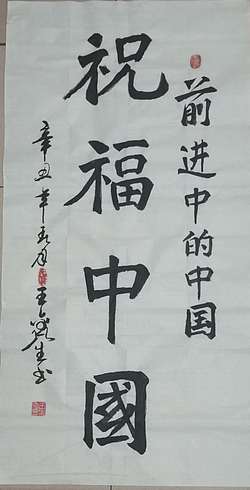 前进中的中国
祝福中國
辛丑年春月王
生书